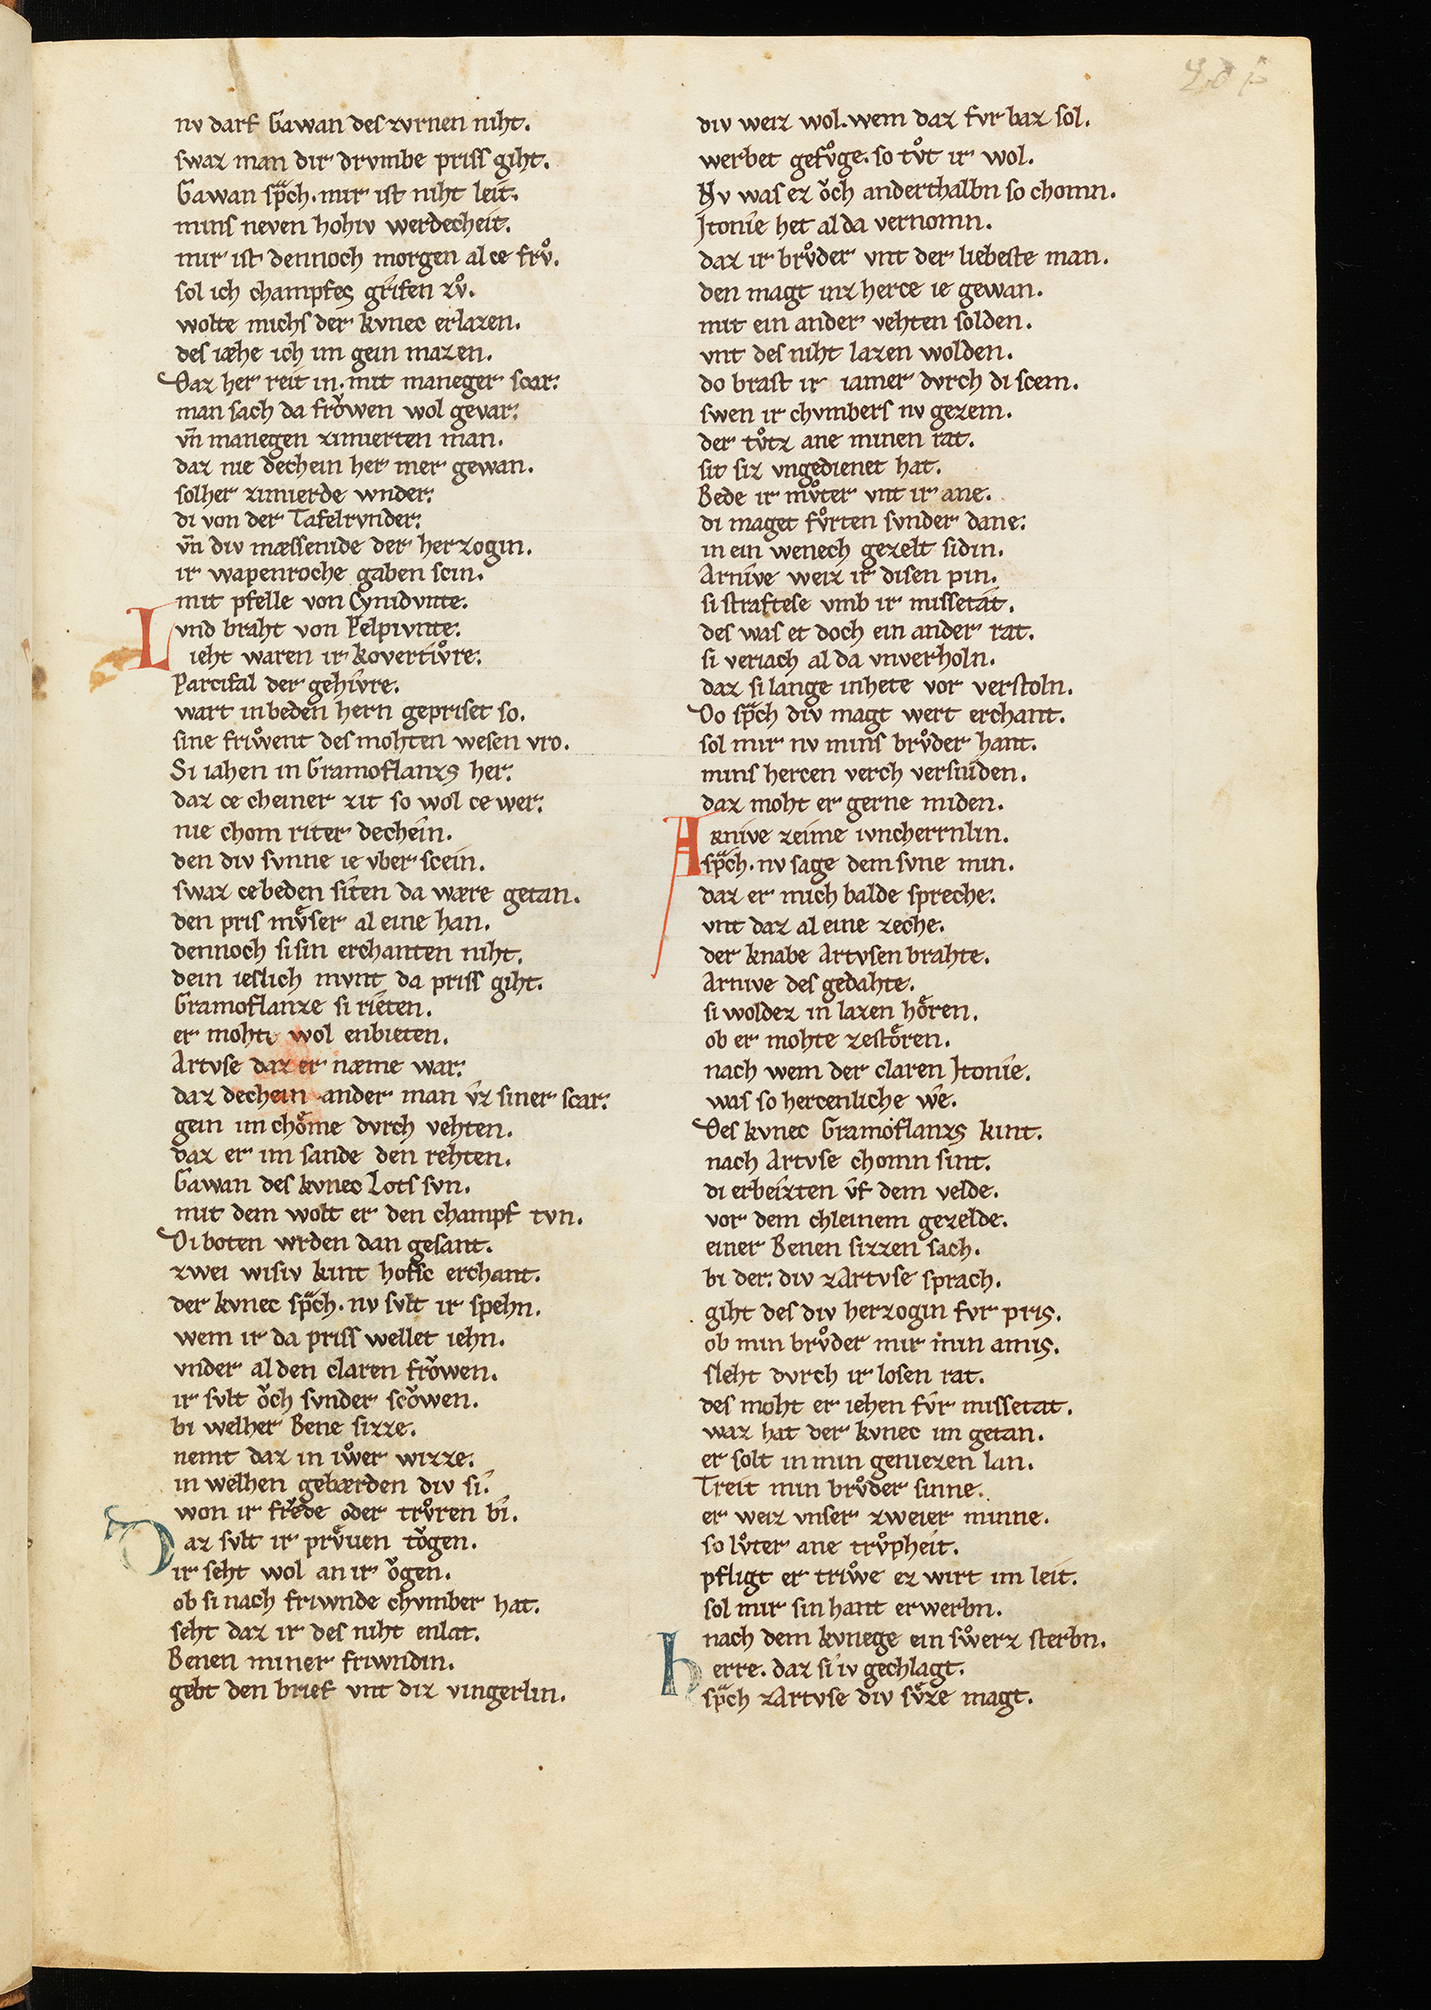 nv darf Gawan des zvrnen niht.
swaz man dir drvmbe priss giht.
Gawan sp̄ch. mir ist niht leit.
mins neven hohiv werdecheit.
mir ist dennoch morgen al ce frv̊.
sol ich champfes grifen zv̊.
wolte michs der kvnec erlazen.
des iæhe ich im gein mazen.
Daz her reit in. mit maneger scar.
man sach da frǒwen wol gevar.
vn̄ manegen zimierten man.
daz nie dechein her mer gewan.
solher zimierde wnder.
di von der Tafelrvnder.
vn̄ div mæssenide der herzogin.
ir wapenroche gaben scin.
mit pfelle von Cynidvnte.
vnd braht von Pelpivnte.
Lieht waren ir kovertiv̊re.
Parcifal der gehivre.
wart in beden hern gepriset so.
sine friẘent des mohten wesen vro.
Si iahen in Gramoflanzs her.
daz ce cheiner zit so wol ce wer.
nie chom riter dechein.
den div svnne ie vber scein.
swaz ce beden siten da wære getan.
den pris mv̊ser al eine han.
dennoch si sin erchanten niht.
dem ieslich mvnt da priss giht.
Gramoflanze si rieten.
er moht wol enbieten.
Artvse daz er næme war.
daz dechein ander man v̂z siner scar.
gein im chǒme dvrch vehten.
daz er im sande den rehten.
Gawan des kvnec Lots svn.
mit dem wolt er den champf tvn.
Di boten wrden dan gesant.
zwei wisiv kint hofsc erchant.
der kvnec sp̄ch. nv svlt ir spehn.
wem ir da priss wellet iehn.
vnder al den claren frǒwen.
ir svlt ǒch svnder scǒwen.
bi welher Bene sizze.
nemt daz in iẘer wizze.
in welhen gebærden div si.
won ir frěde oder trv̊ren bi.
Daz svlt ir prv̊uen tǒgen.
ir seht wol an ir ǒgen.
ob si nach friwnde chvmber hat.
seht daz ir des niht enlat.
Benen miner friwndin.
gebt den brief vnt diz vingerlin.
div weiz wol. wem daz fvr baz sol.
werbet gefv̊ge. so tv̊t ir wol.
Nv was ez ǒch anderthalbn so chomn.
Jtonie het al da vernomn.
daz ir brv̊der vnt der liebeste man.
den magt inz herce ie gewan.
mit ein ander vehten solden.
vnt des niht lazen wolden.
do brast ir iamer dvrch di scem.
swen ir chvmbers nv gezem.
der tv̊tz ane minen rat.
sit siz vngedienet hat.
Bede ir mv̊ter vnt ir ane.
di maget fv̊rten svnder dane.
in ein wenech gezelt sidin.
Arnive weiz ir disen pin.
si straftese vmb ir missetat.
des was et doch ein ander rat.
si veriach al da vnverholn.
daz si lange in hete vor verstoln.
Do sp̄ch div magt wert erchant.
sol mir nv mins brv̊der hant.
mins hercen verch versniden.
daz moht er gerne miden.
Arnive zeime ivncherrnlin.
sp̄ch. nv sage dem svne min.
daz er mich balde spreche.
vnt daz al eine zeche.
der knabe Artvsen brahte.
Arnive des gedahte.
si woldez in lazen hǒren.
ob er mohte zestǒren.
nach wem der claren Jtonie.
was so hercenliche we.
Des kvnec Gramoflanzs kint.
nach Artvse chomn sint.
di erbeizten v̂f dem velde.
vor dem chleinem gezelde.
einer Benen sizzen sach.
bi der. div zArtvse sprach.
giht des div herzogin fvr pris.
ob min brv̊der mir min amis.
sleht dvrch ir losen rat.
des moht er iehen fv̂r missetat.
waz hat der kvnec im getan.
er solt in min geniezen lan.
Treit min brv̊der sinne.
er weiz vnser zweier minne.
so lv̊ter ane trv̊pheit.
pfligt er triẘe ez wirt im leit.
sol mir sin hant erwerbn.
nach dem kvnege ein sẘerz sterbn.
herre. daz si iv gechlagt.
sp̄ch zArtvse div sv̊ze magt.